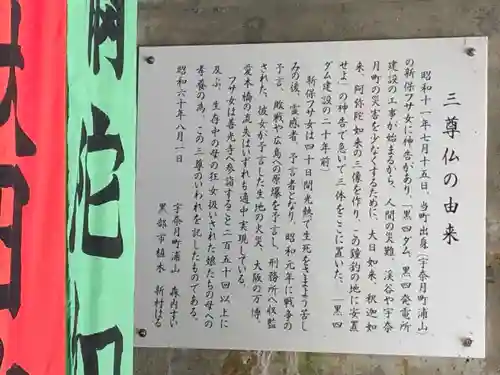 三尊仏の由来
昭和十一年七月十五日、当町出身(宇奈月町浦山)
の新保フサ女に神告があり、「黒四ダム、黒四発電所
建設の工事が始まるから、人間の災難、渓谷や宇奈
月町の災害を少なくするために、大日如来、釈迦如
来、阿弥陀如来の三像を作り、この鐘釣の地に安置
せよ」の神告で急いで三体をここに置いた。(黒四
ダム建設の二十年前)
新保フサ女は四十日間光熱で生死をさまよう苦し
みの後、霊感者、予言者となり、昭和元年に戦争の
予言、敗戦や広島への原爆を予言し、刑務所へ収監
された。彼女が予言した生地の火災、大阪の万博、
愛本橋の流失はいずれも適中実現している。
フサ女は善光寺へ参詣すること二百五十回以上に
及ぶ。生存中の母の狂女扱いされた娘たちの母への
孝養の為、この三尊のいわれを記したものである。
昭和六十年八月一日
宇奈月町浦山 森内すい
黒部市植木 新村はる
陀
如